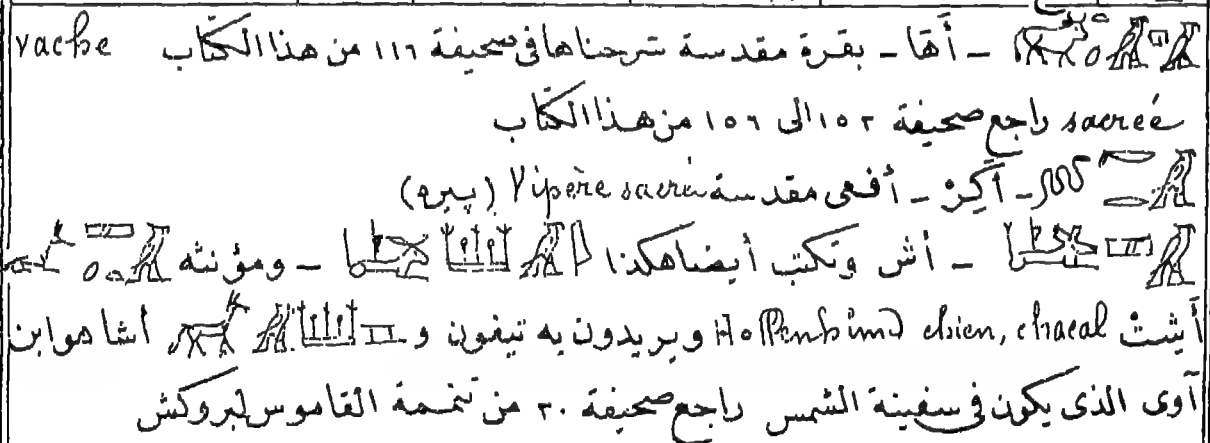 𓄿𓉔𓄿 - أَهَا - بقرة مقدسة شرحناها فى صحيفة ١١٦ من هذا الكتاب vache
sacrée راجع صحيفة ١٥٢ الى ١٥٦ من هذا الكتاب
- أَكِرْ - أفعى مقدسة Vipère sacrée (پيره)
- أش وتكتب أيضا هكذا - ومؤنثه
أَيشتْ chien, chacal ويريدون به تيفون و أشا هو ابن
آوى الذى يكون فى سفينة الشمس راجع صحيفة ٢٠ من تتمة القاموس لبروكش